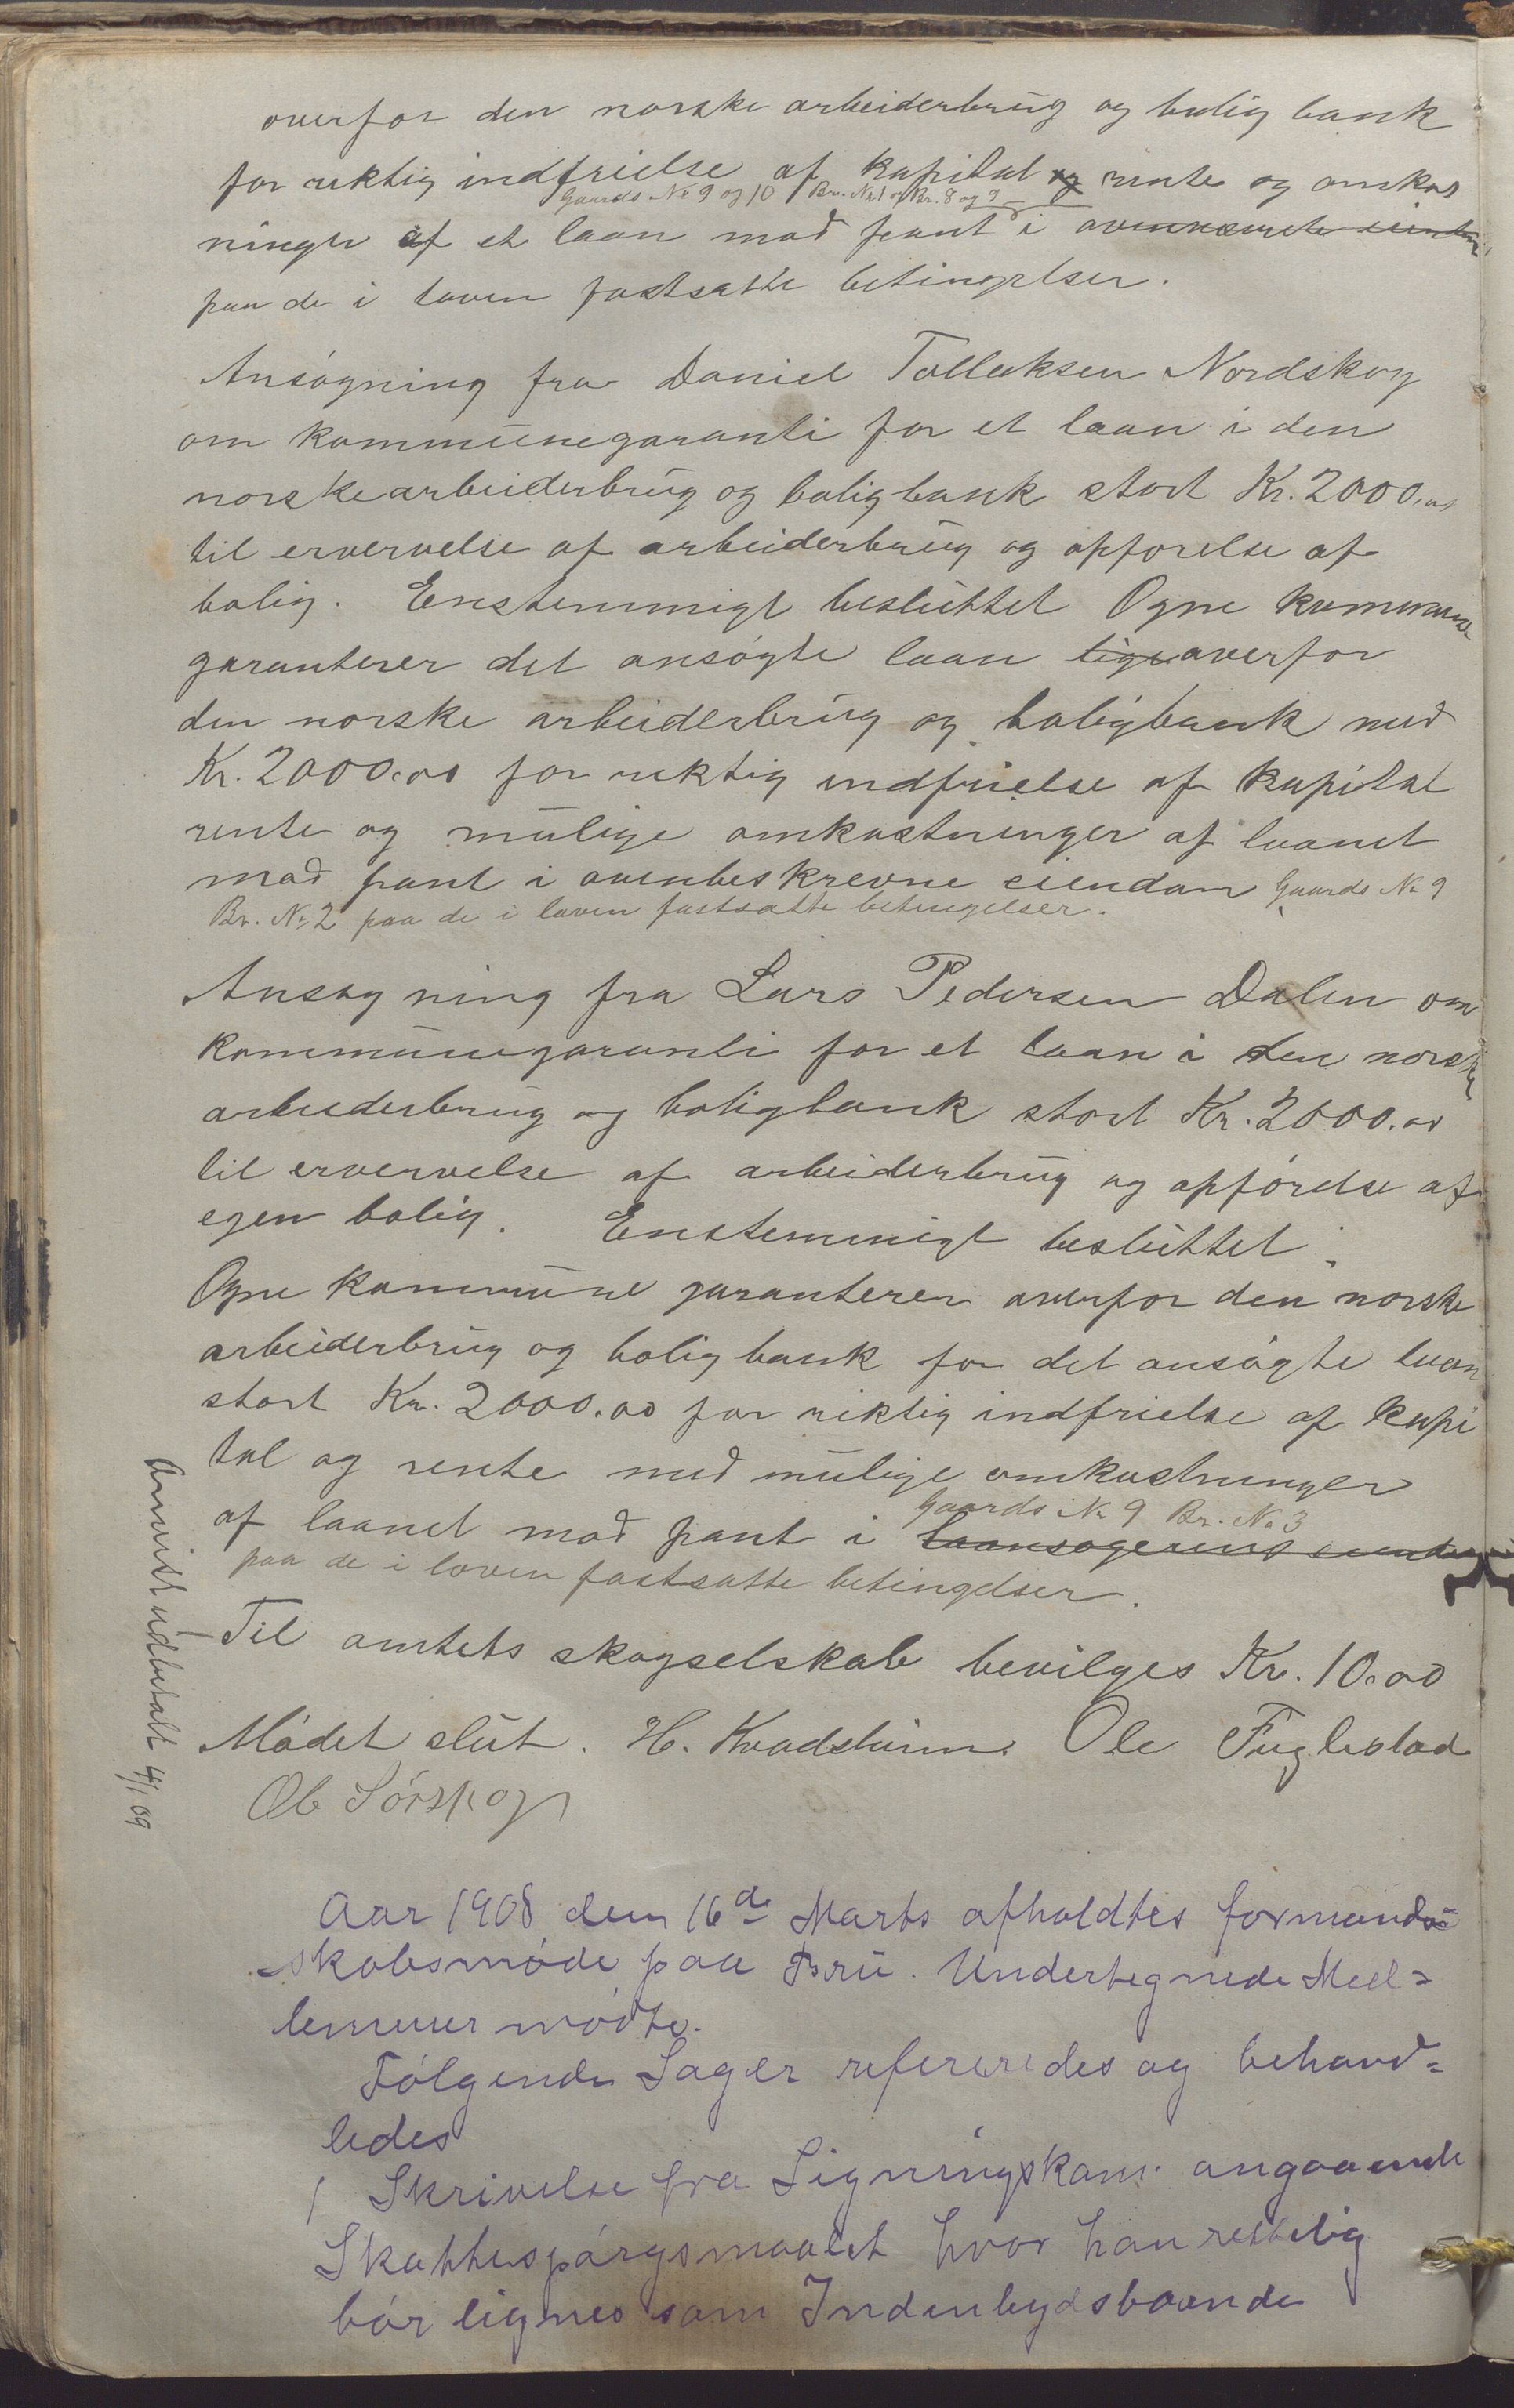 overfor den norske arbeiderbrug og bolig bank
for riktig indfrielse af kapital og rente og omkost
Gaards No 9 og 10 Br. No 1 og Br. 8 og 9
ninger af et laan mod pant i
paa de i loven fastsatte betingelser.
Ansøgning fra Daniel Tollaksen Nordskog
om kommunegaranti for et laan i den
norske arbeiderbrug og boligbank stort Kr. 2000,00
til ervervelse af arbeiderbrug og opførelse af
bolig. Enstemmigt besluttet Ogne kommune
garanterer det ansøgte laan lige overfor
den norske arbeiderbrug og boligbank med
Kr. 2000.00 for riktig indfrielse af kapital
rente og mulige omkostninger af laanet
mod pant i ovenbeskrevne eiendom Gaards No 9
Br. No 2 paa de i loven fastsatte betingelser.
Ansøgning fra Lars Pedersen Dalen om
kommunegaranti for et laan i den norske
arbeiderbrug og boligbank stort Kr. 2000.00
til ervervelse af arbeiderbrug og opførelse af
egen bolig. Enstemmigt besluttet.
Ogne kommune garanterer overfor den norske
arbeiderbrug og bolig bank for det ansøgte laan
stort Kr. 2000.00 for riktig indfrielse af kapi
tal og rente med mulige omkostninger
Gaards No 9 Br. No 3
af laanet mod pant i laansøgerens eiendom
paa de i loven fastsatte betingelser.
Til amtets skogselskab bevilges Kr. 10.00
Anvist udbetalt 4/1 09
Mødet slut. H. Kvadsheim. Ole Fuglestad
Ob Sørskog
Aar 1908 den 16de Marts afholdtes formand
skabsmøde paa Bru. Undertegnede Med=
lemmer mødte.
Følgende Sager refereredes og behand=
ledes
1 Skrivelse fra Ligningskom. angaaende
Skattespørgsmaalet hvor han rettelig
bør lignes som Indenbygdsboende